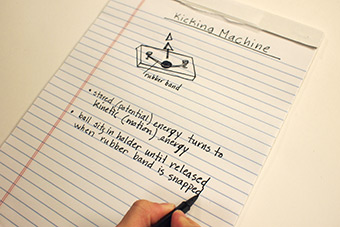 Kicking Machine
rubber band
• stored (potential) energy turns to
kinetic (motion) energy
• ball sits in holder until released
when rubber band is snapped